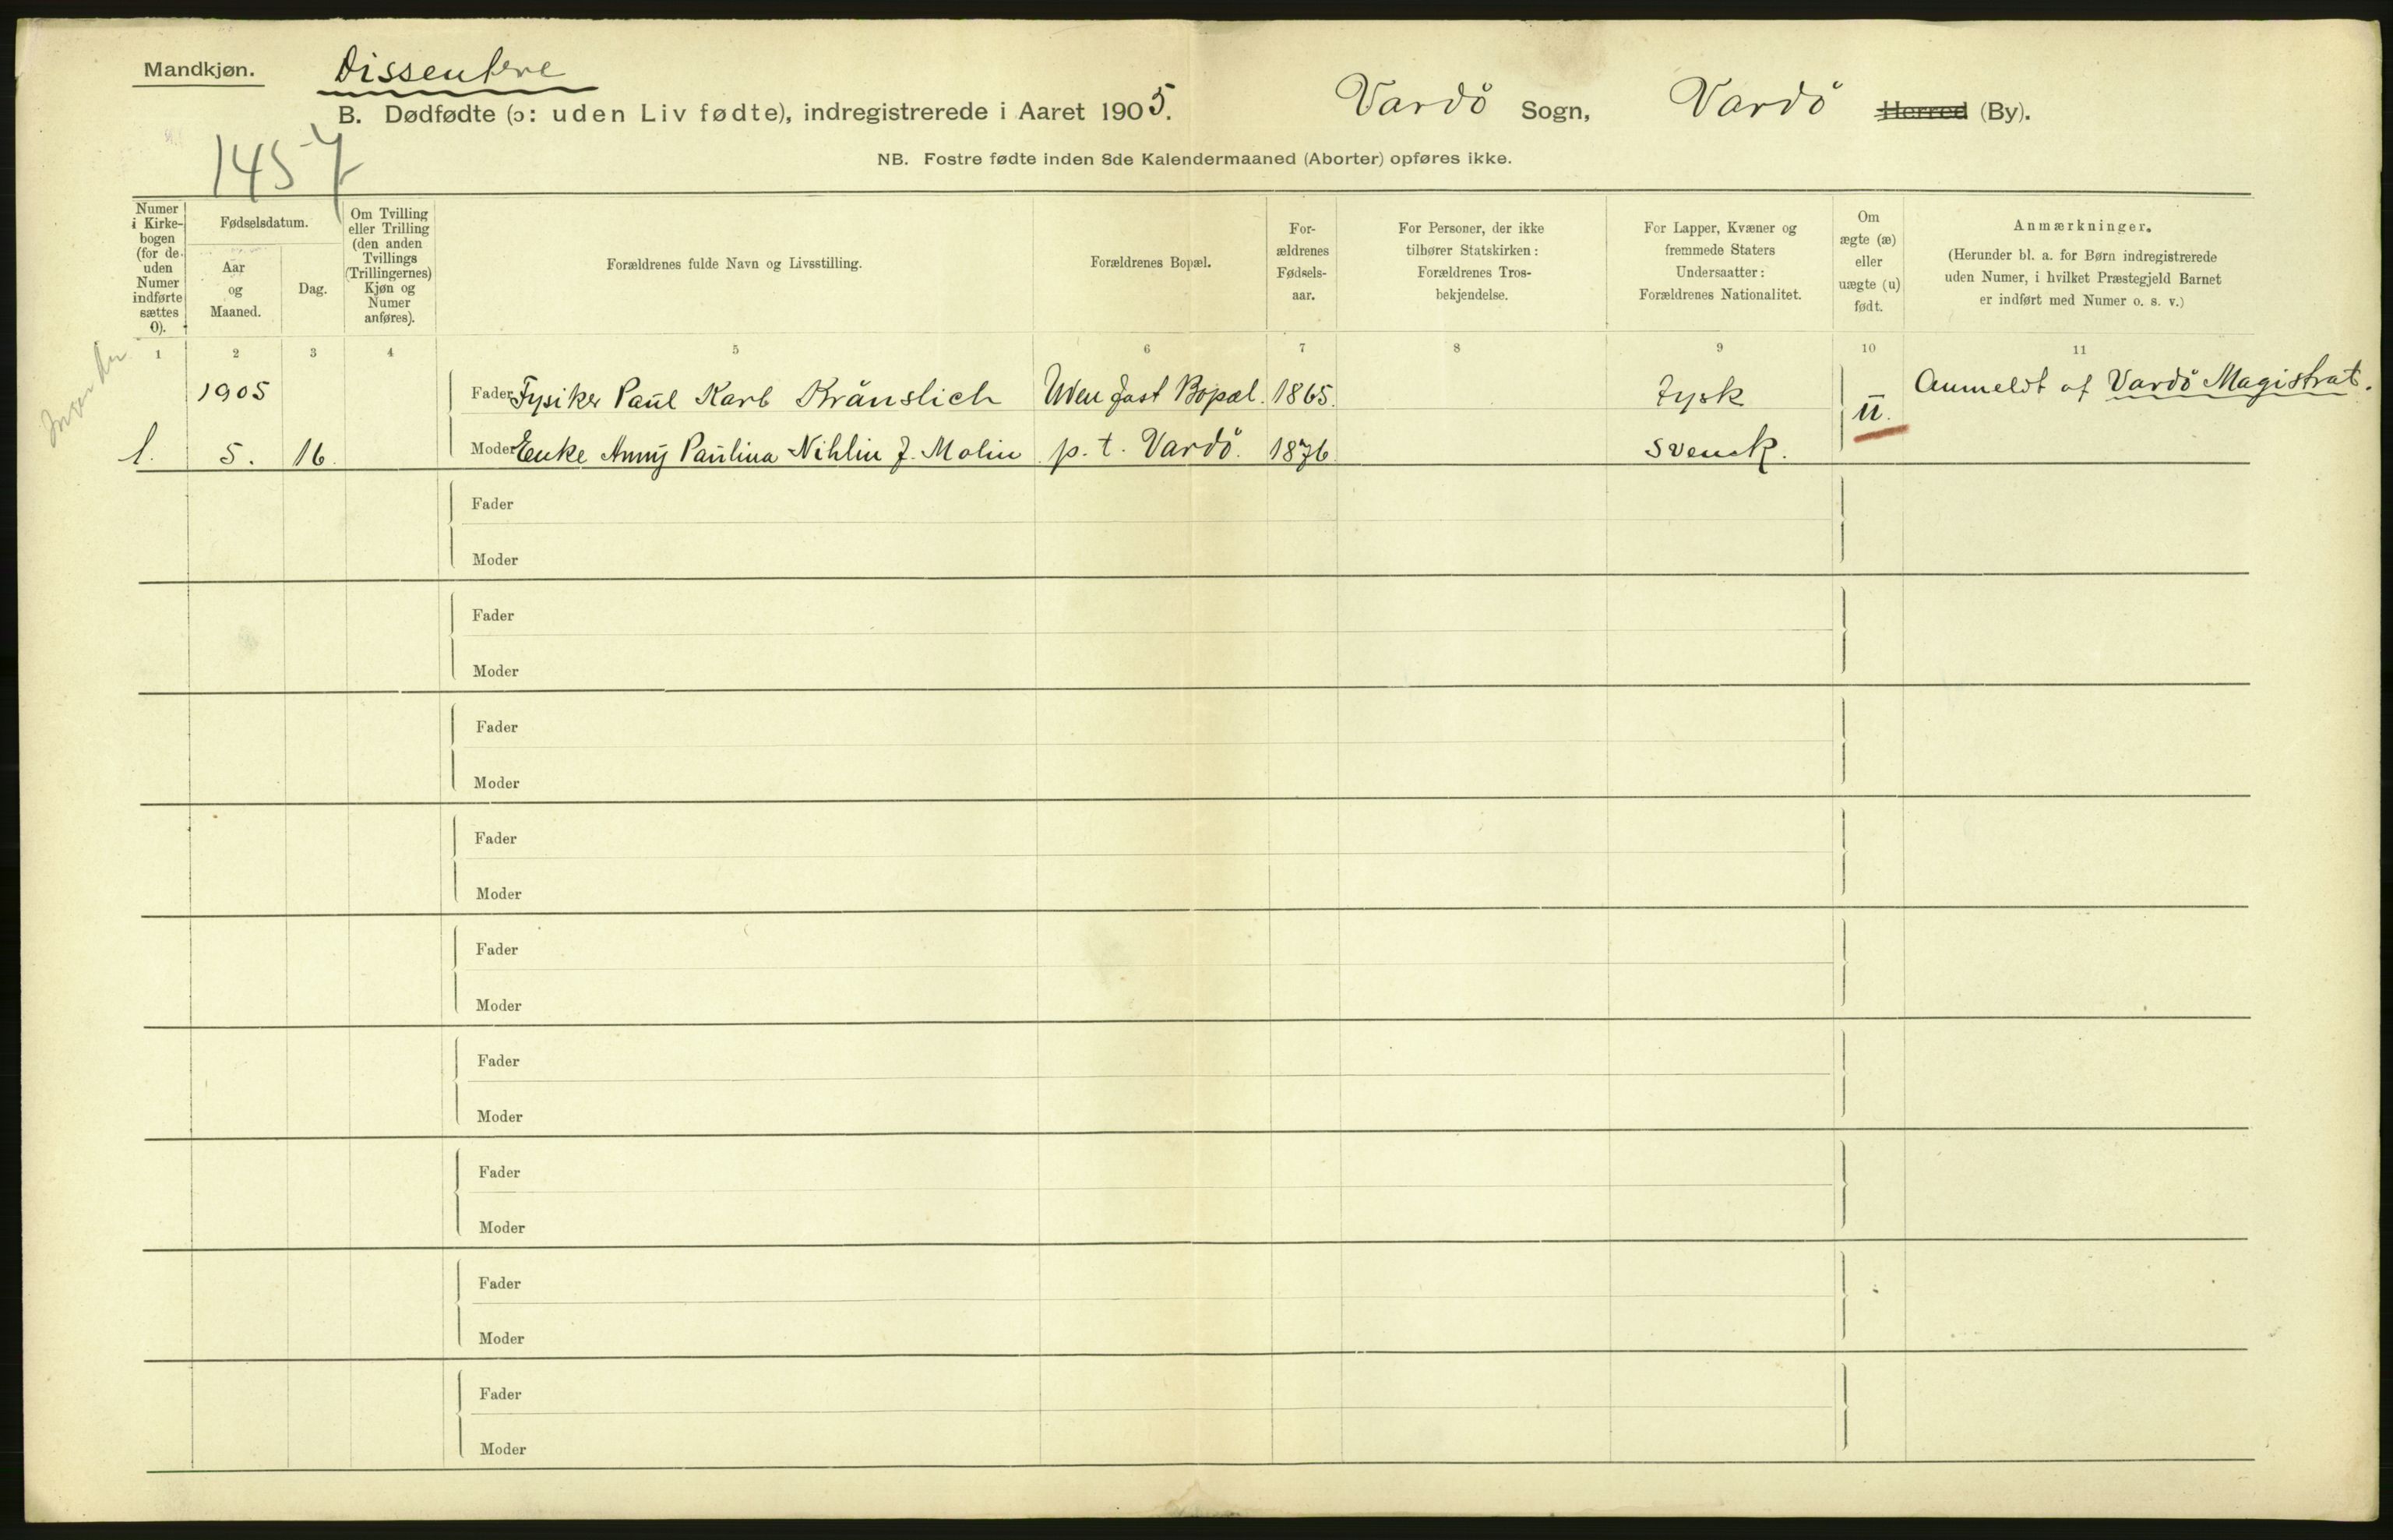 Mandkjøn.
Dissentere
B. Dødfødte (ɔ: uden Liv fødte), indregistrerede i Aaret 1905.
Vardö Sogn, Vardö Herred (By).
1457
NB. Fostre fødte inden 8de Kalendermaaned (Aborter) opføres ikke.
Numer
i Kirke-
bogen
(for de
uden
Numer
indførte
sættes
0).
Fødselsdatum.
Aar
og
Maaned.
Dag.
Om Tvilling
eller Trilling
(den anden
Tvillings
(Trillingernes)
Kjøn og
Numer
anføres).
Forældrenes fulde Navn og Livsstilling.
Forældrenes Bopæl.
For-
ældrenes
Fødsels-
aar.
For Personer, der ikke
tilhører Statskirken:
Forældrenes Tros-
bekjendelse.
For Lapper, Kvæner og
fremmede Staters
Undersaatter:
Forældrenes Nationalitet.
Om
ægte (æ)
eller
uægte (u)
født.
Anmærkninger.
(Herunder bl. a. for Børn indregistrerede
uden Numer, i hvilket Præstegjeld Barnet
er indført med Numer o. s. v.)
1 2 3 4 5 6 7 8 9 10 11
1905 Fader Fysiker Paul Karl Kränslich Uden fast Bopæl. 1865. Tysk u. Anmeldt af Vardö Magistrat.
1. 5. 16. Moder Enke Anny Paulina Nihlin f. Molin p. t. Vardö. 1876. Svensk.
Fader
Moder
Fader
Moder
Fader
Moder
Fader
Moder
Fader
Moder
Fader
Moder
Fader
Moder
Fader
Moder
Fader
Moder